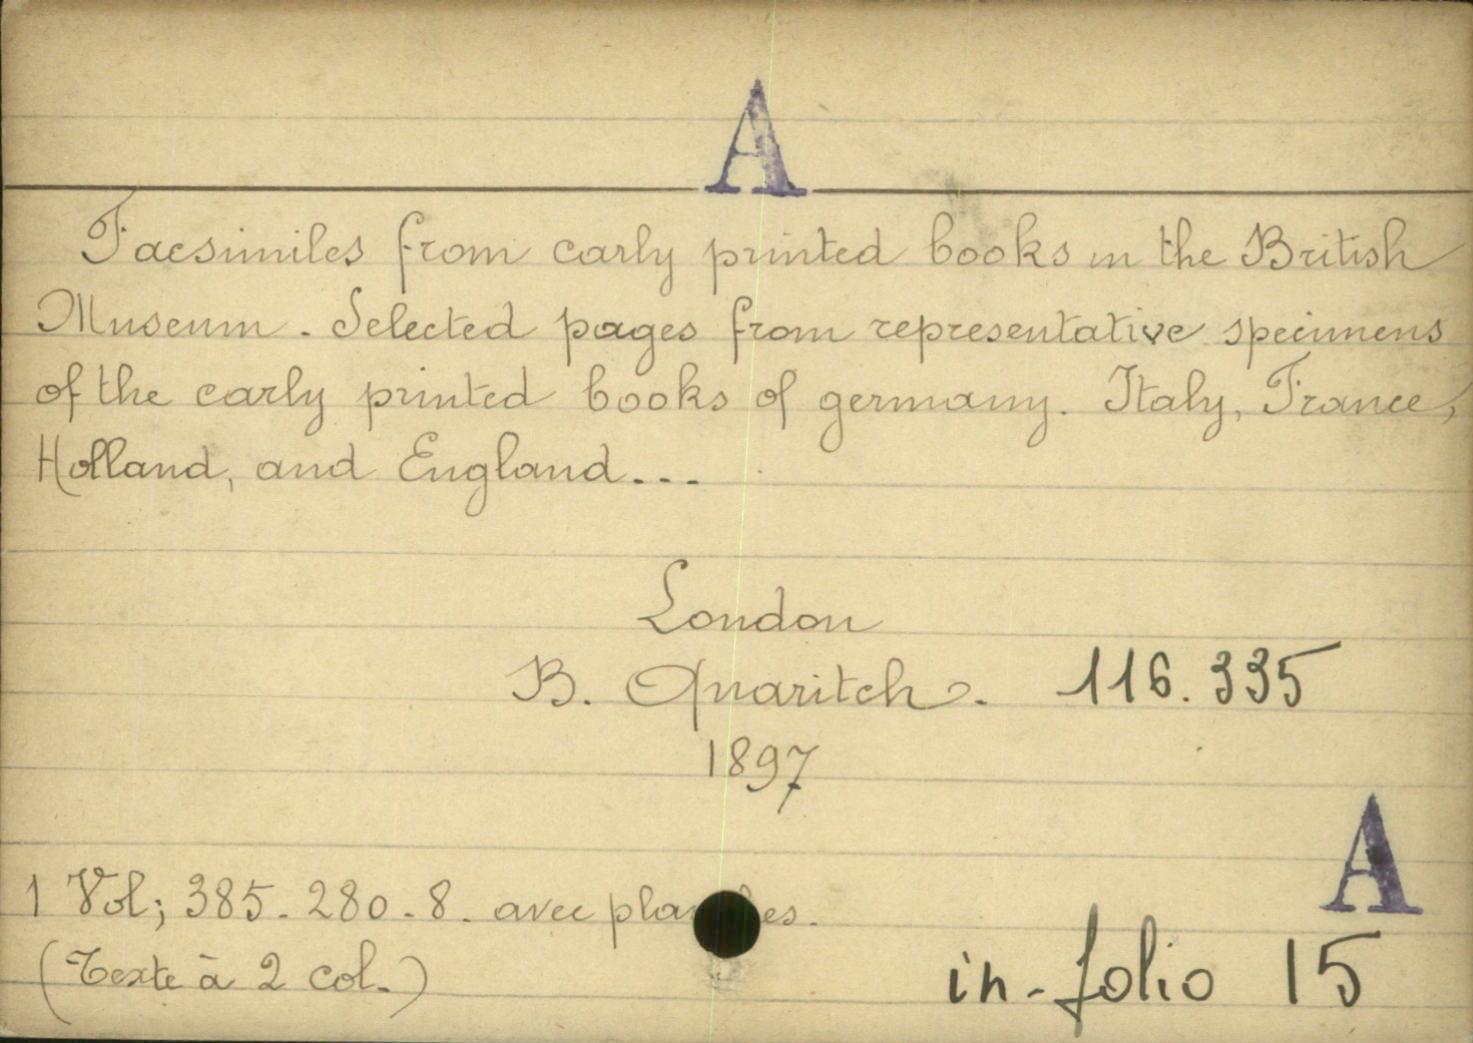 A
Facsimiles from early printed books in the British
Museum. Selected pages from representative specimens
of the early printed books of germany. Italy, France,
Holland, and England...
London
B. Quaritch. 116.335
1897
A
1 Vol; 385-280-8. avec planches.
(Texte à 2 col.)
in-folio 15